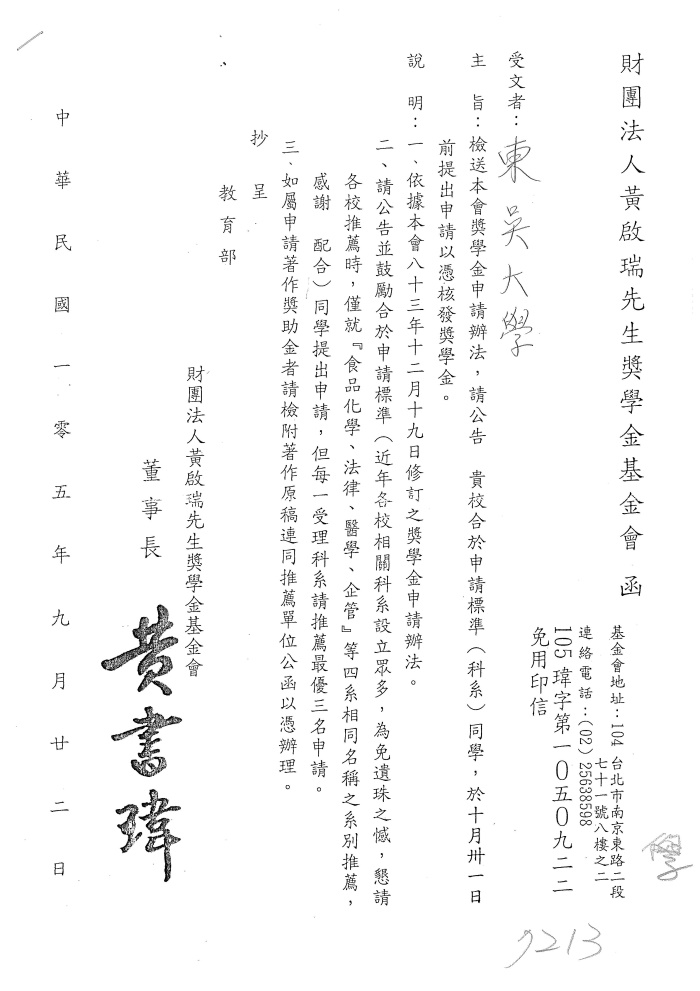 財團法人黃啟瑞先生獎學金基金會 函
基金會地址：104 台北市南京東路二段
七十一號八樓之二
連絡電話：(02) 25638598
105 瑋字第一０五０九二二
免用印信
受文者：東吳大學
主 旨：檢送本會獎學金申請辦法，請公告 貴校合於申請標準（科系）同學，於十月卅一日
前提出申請以憑核發獎學金。
說 明：一、依據本會八十三年十二月十九日修訂之獎學金申請辦法。
二、請公告並鼓勵合於申請標準（近年各校相關科系設立眾多，為免遺珠之憾，懇請
各校推薦時，僅就『食品化學、法律、醫學、企管』等四系相同名稱之系別推薦，
感謝 配合）同學提出申請，但每一受理科系請推薦最優三名申請。
三、如屬申請著作獎助金者請檢附著作原稿連同推薦單位公函以憑辦理。
抄 呈
教育部
財團法人黃啟瑞先生獎學金基金會
董事長 黃書瑋
中華民國一零五年九月廿二日
學
9213